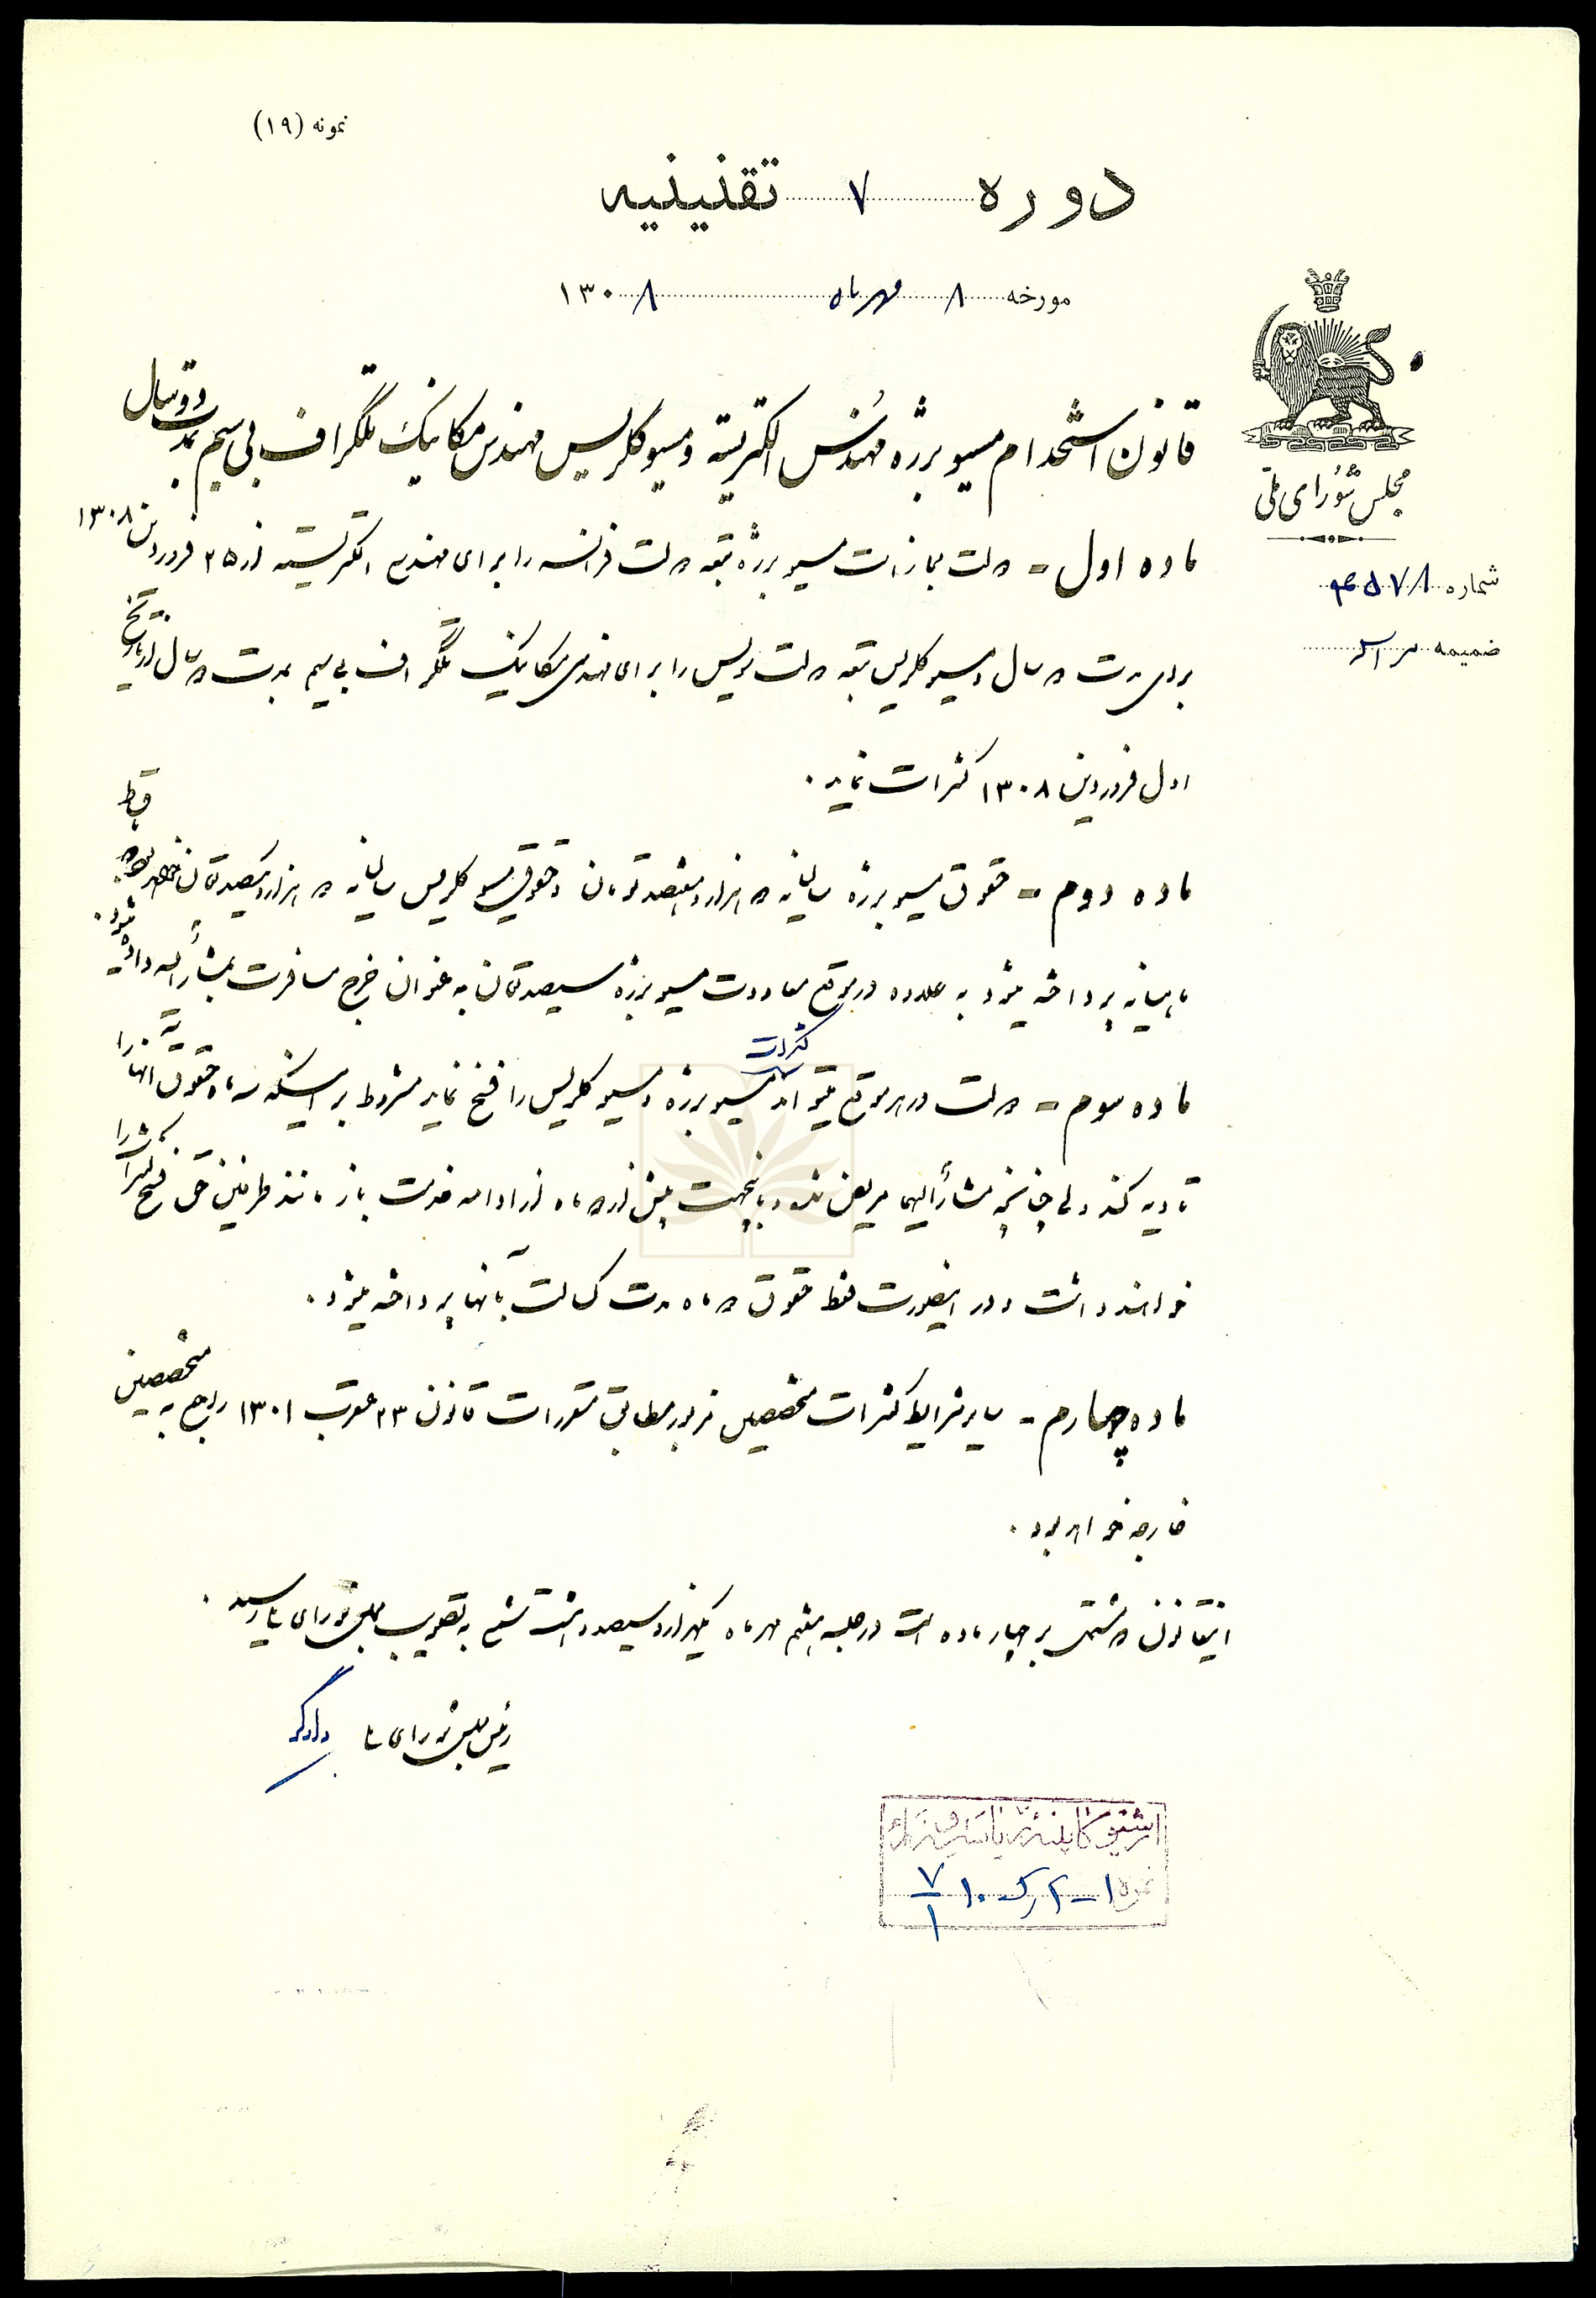 نمونه (۱۹)
دوره ۷ تقنینیه
مورخه ۸ مهر ماه ۱۳۰۸
مجلس شورای ملی
شماره ۴۵۷۸
ضمیمه
قانون استخدام مسیو برژه مهندس الکتریسته و مسیو کلریس مهندس مکانیک تلگراف بی سیم بمدت دو سال
ماده اول - دولت مجاز است مسیو برژه تبعه دولت فرانسه را برای مهندسی الکتریسته از ۲۵ فروردین ۱۳۰۸
برای مدت دو سال و مسیو کلریس تبعه دولت سویس را برای مهندسی مکانیک تلگراف بی سیم بمدت دو سال از تاریخ
اول فروردین ۱۳۰۸ کنترات نماید.
ماده دوم - حقوق مسیو برژه سالیانه دو هزار و هفتصد تومان و حقوق مسیو کلریس سالیانه دو هزار و یکصد تومان خواهد بود که باقساط
ماهیانه پرداخته میشود به علاوه در موقع معاودت مسیو برژه سیصد تومان به عنوان خرج مسافرت بمشارالیه داده میشود.
ماده سوم - دولت در هر موقع میتواند کنترات مسیو برژه و مسیو کلریس را فسخ نماید مشروط بر اینکه سه ماه حقوق آنها را
تادیه کند ولی چنانچه مشارالیهما مریض شوند و باینجهت بیش از دو ماه از ادامه خدمت باز مانند طرفین حق فسخ کنترات را
خواهند داشت و در اینصورت فقط حقوق دو ماه مدت کسالت بآنها پرداخته میشود.
ماده چهارم - سایر شرایط کنترات متخصصین مزبور مطابق مقررات قانون ۲۳ عقرب ۱۳۰۱ راجع به متخصصین
خارجه خواهد بود.
اینقانون که مشتمل بر چهار ماده است در جلسه هشتم مهر ماه یکهزار و سیصد و هشت شمسی به تصویب مجلس شورای ملی رسید.
رئیس مجلس شورای ملی دادگر
آرشیو کابینه ریاست وزراء
نمره